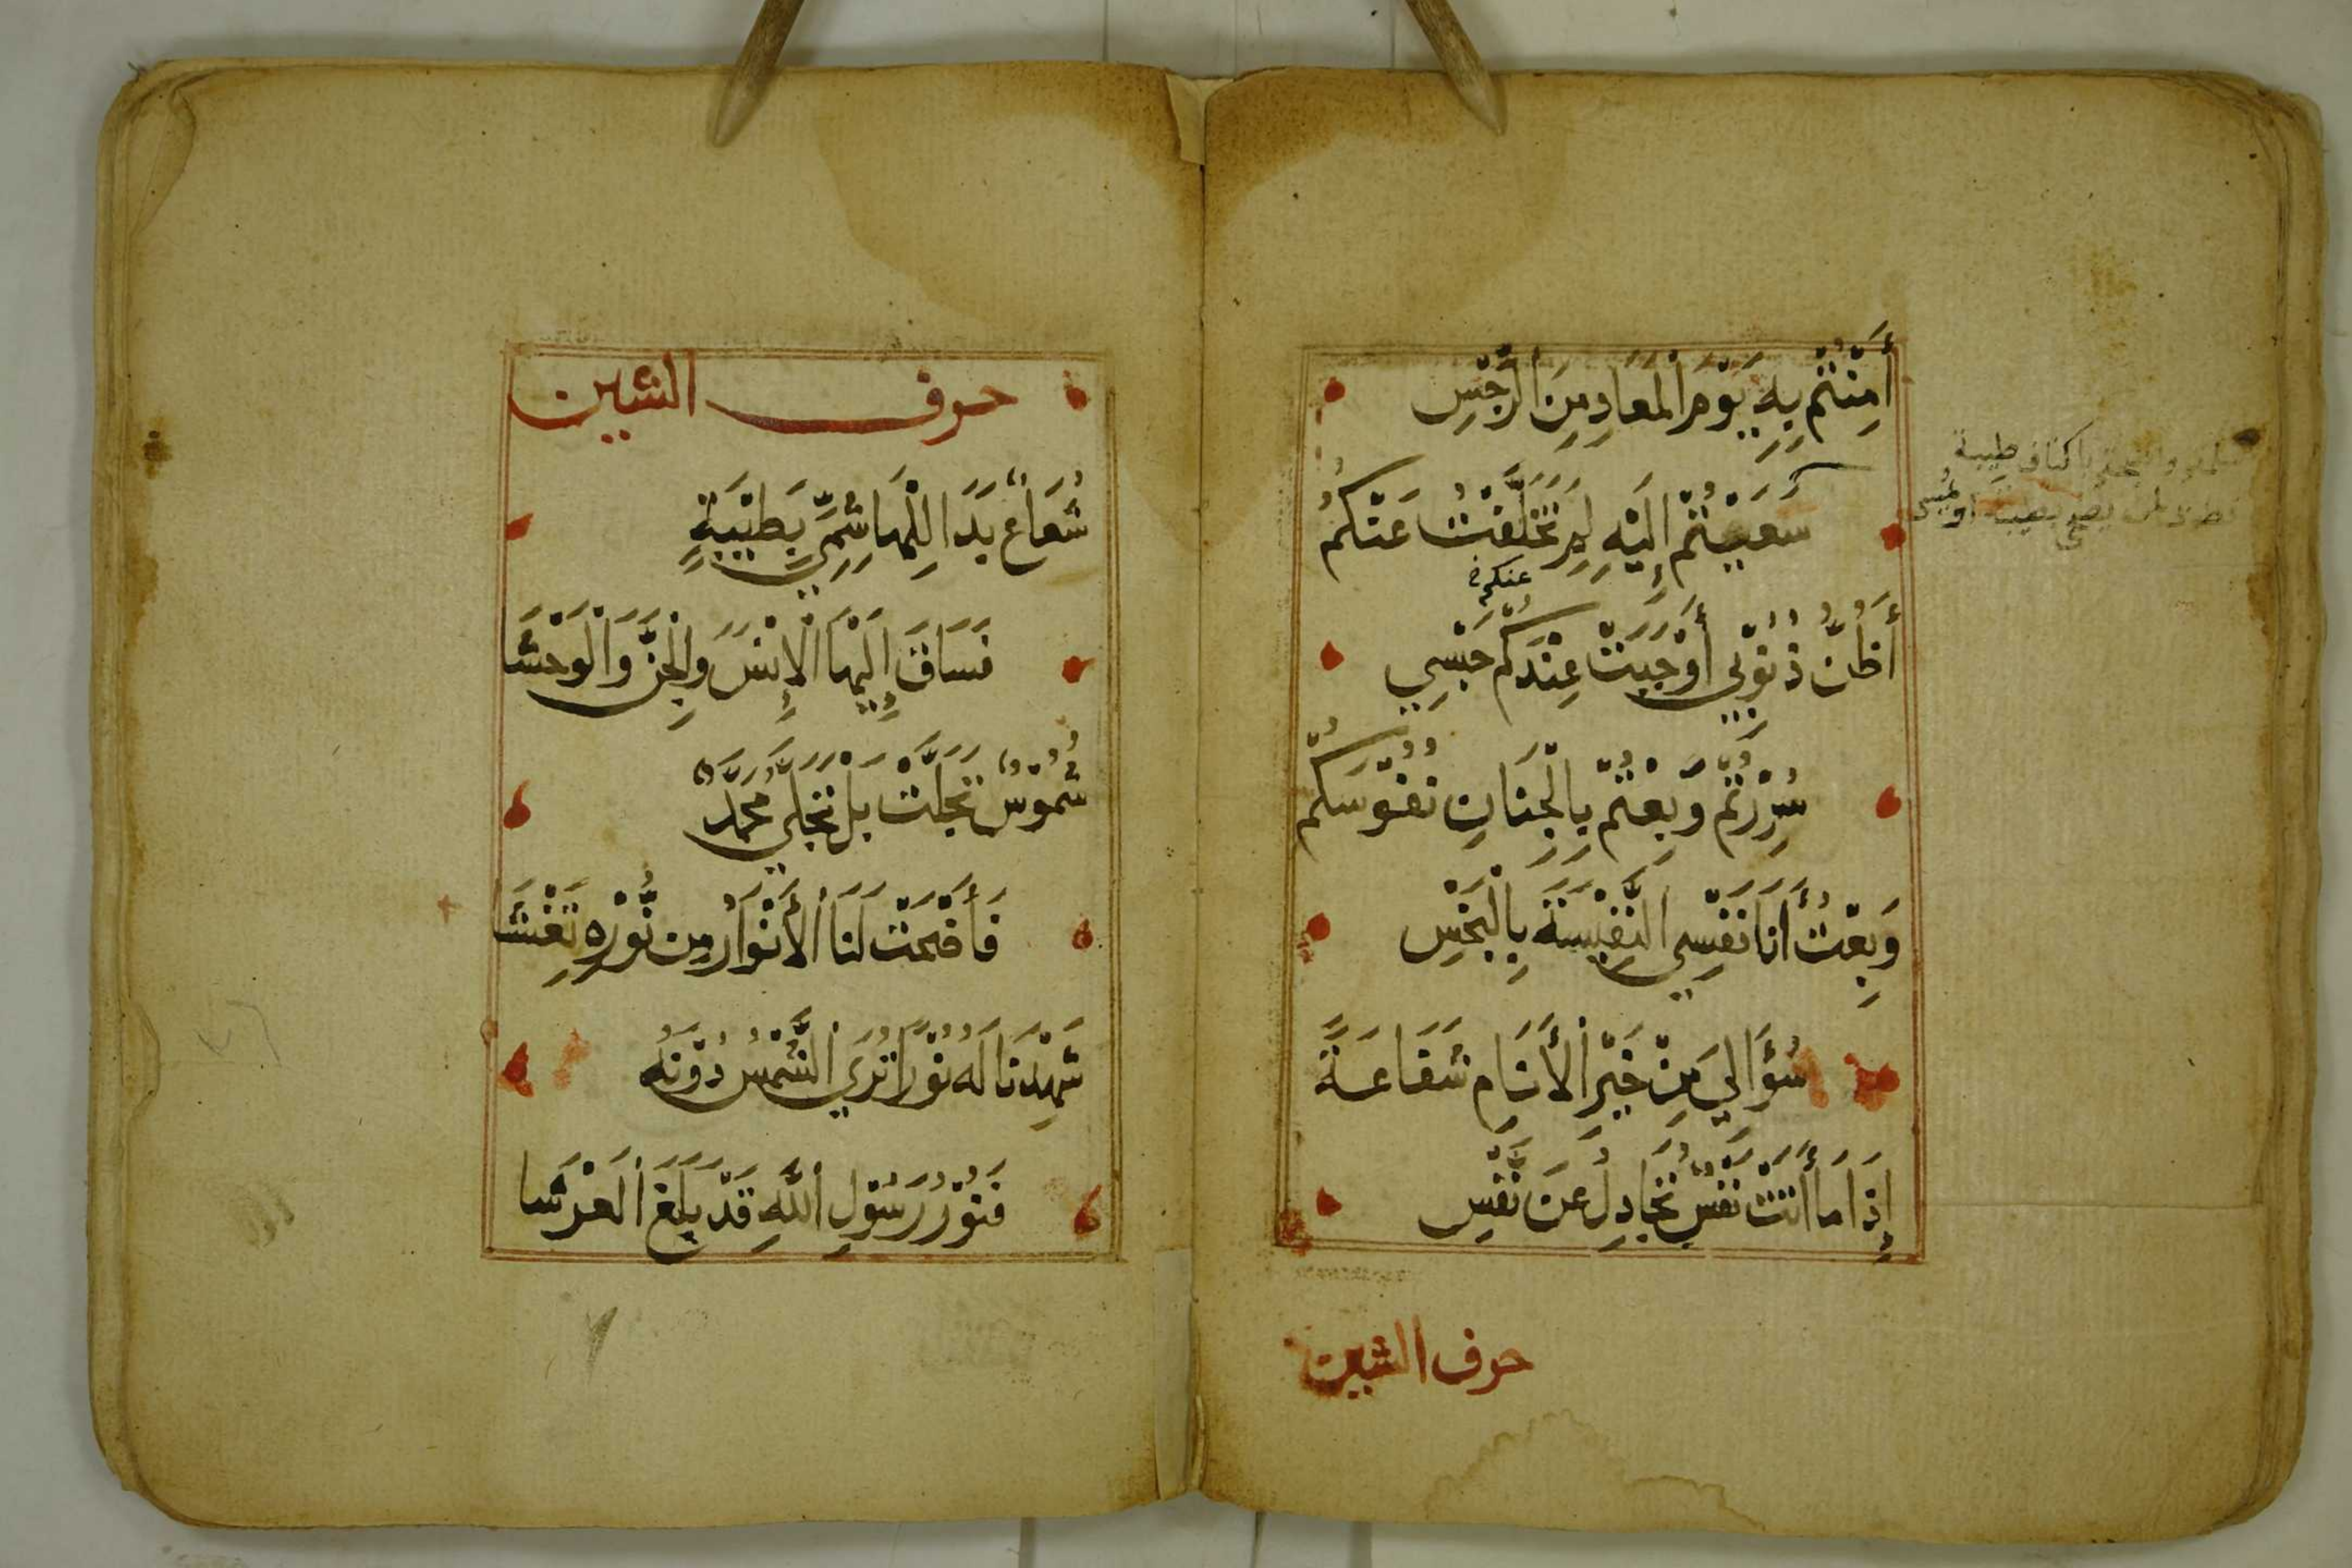 أَمِنْتُمْ بِهِ يَوْمَ الْمَعَادِ مِنَ الرِّجْسِ
سَعَيْتُمْ إِلَيْهِ لِمْ تَخَلَّفْتُ عَنْكُمُ
عنكم
أَظُنُّ ذُنُوْبِي أَوْجَبَتْ عِنْدَكُمْ حَبْسِي
سُرِرْتُمْ وَبِعْتُمْ بِالْجِنَانِ نُفُوْسَكُمْ
وَبِعْتُ أَنَا نَفْسِي النَّفِيْسَةَ بِالْبَخْسِ
سُؤَالِيَ مِنْ خَيْرِ الْأَنَامِ شَفَاعَةً
إِذَا مَا أَتَتْ نَفْسٌ تُجَادِلُ عَنْ نَفْسِ
حرف الشين
باكناف طيبة
حرف الشين
شُعَاعٌ بَدَا لِلْهَاشِمِيِّ بِطَيْبَةٍ
فَسَاقَ إِلَيْهَا الْإِنْسَ وَالْجِنَّ وَالْوَحْشَا
شُمُوْسٌ تَجَلَّتْ بَلْ تَجَلَّى مُحَمَّدٌ
فَأَضْحَتْ لَنَا الْأَنْوَارُ مِنْ نُوْرِهِ تَغْشَا
شَهِدْنَا لَهُ نُوْرًا تُرَى الشَّمْسُ دُوْنَهُ
فَنُوْرُ رَسُوْلِ اللَّهِ قَدْ بَلَغَ الْعَرْشَا